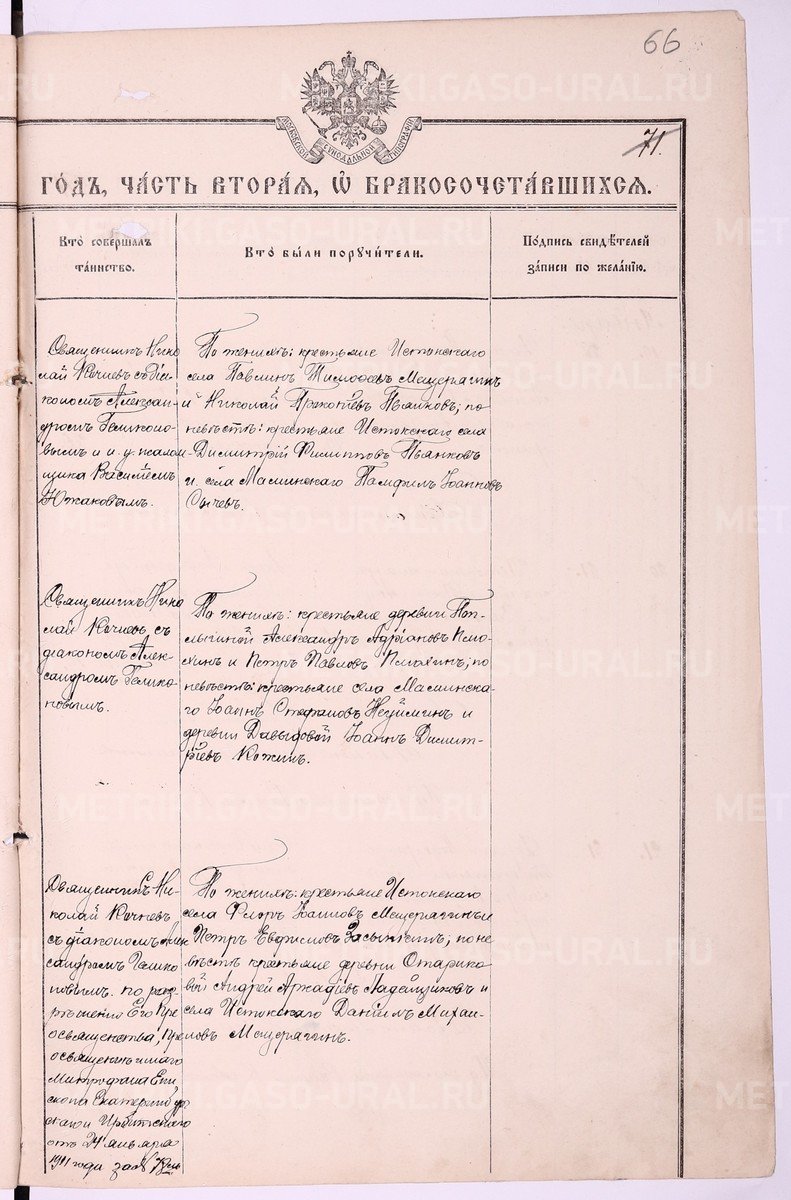 66
71.
МОСКОВСКОЙ СѴНОДАЛЬНОЙ ТИПОГРАФІИ
ГОДЪ, ЧАСТЬ ВТОРАЯ, Ѽ БРАКОСОЧЕТАВШИХСЯ.
Кто совершалъ
таинство.
Кто были поручители.
Подпись свидѣтелей
записи по желанію.
Священникъ Нико
лай Кочневъ съ діа
кономъ Алексан
дромъ Геликоно
вымъ и и. д. псалом
щика Василіемъ
Южаковымъ.
По женихѣ: крестьяне Истокскаго
села Павлинъ Тимоѳеевъ Мещерягинъ
и Николай Прокопіевъ Пьянковъ; по
невѣстѣ: крестьяне Истокскаго села
Димитрій Филипповъ Пьянковъ
и села Маминскаго Памфилъ Іоанновъ
Сычевъ.
Священникъ Нико
лай Кочневъ съ
діакономъ Алек
сандромъ Гелико
новымъ.
По женихѣ: крестьяне деревни
Александръ Адріановъ
и Петръ Павловъ по
невѣстѣ: крестьяне села Маминска
го Іоаннъ Стефановъ Неуйминъ и
деревни Давыдовой Іоаннъ Димит-
ріевъ Кожинъ.
Священникъ Ни-
колай Кочневъ
съ діакономъ Алек
сандромъ Гелико
новымъ. по раз
рѣшенію Его Пре
освященства, Пре
освященнѣйшаго
Митрофана Епи
скопа Екатеринбур
скаго и Ирбитскаго
отъ 24 января
1911 года за №
По женихѣ: крестьяне Истокскаго
села Флоръ Іоанновъ Мещерягинъ и
Петръ Евфимовъ Засыпкинъ; по не
вѣстѣ крестьяне деревни
Андрей Аркадіевъ Ладейщиковъ и
села Истокскаго Даніилъ Михаи
ловъ Мещерягинъ.
METRIKI.GASO-URAL.RU